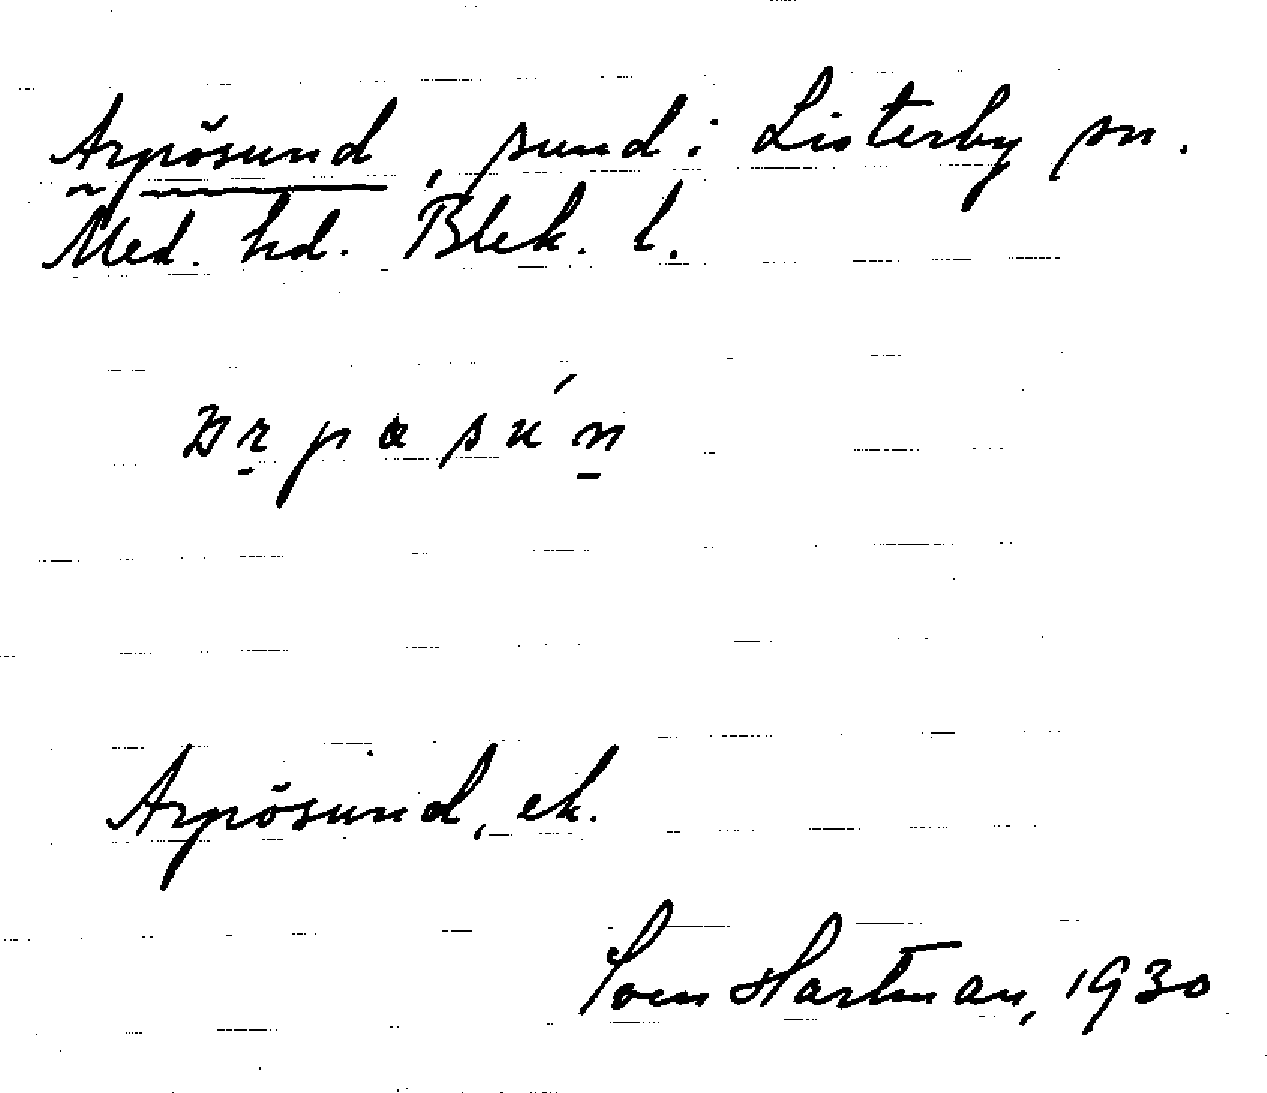 Arpösund, sund i Listerby sn.
Med. hd. Blek. l.
Arpösund, ek.
Sven Hartman, 1930